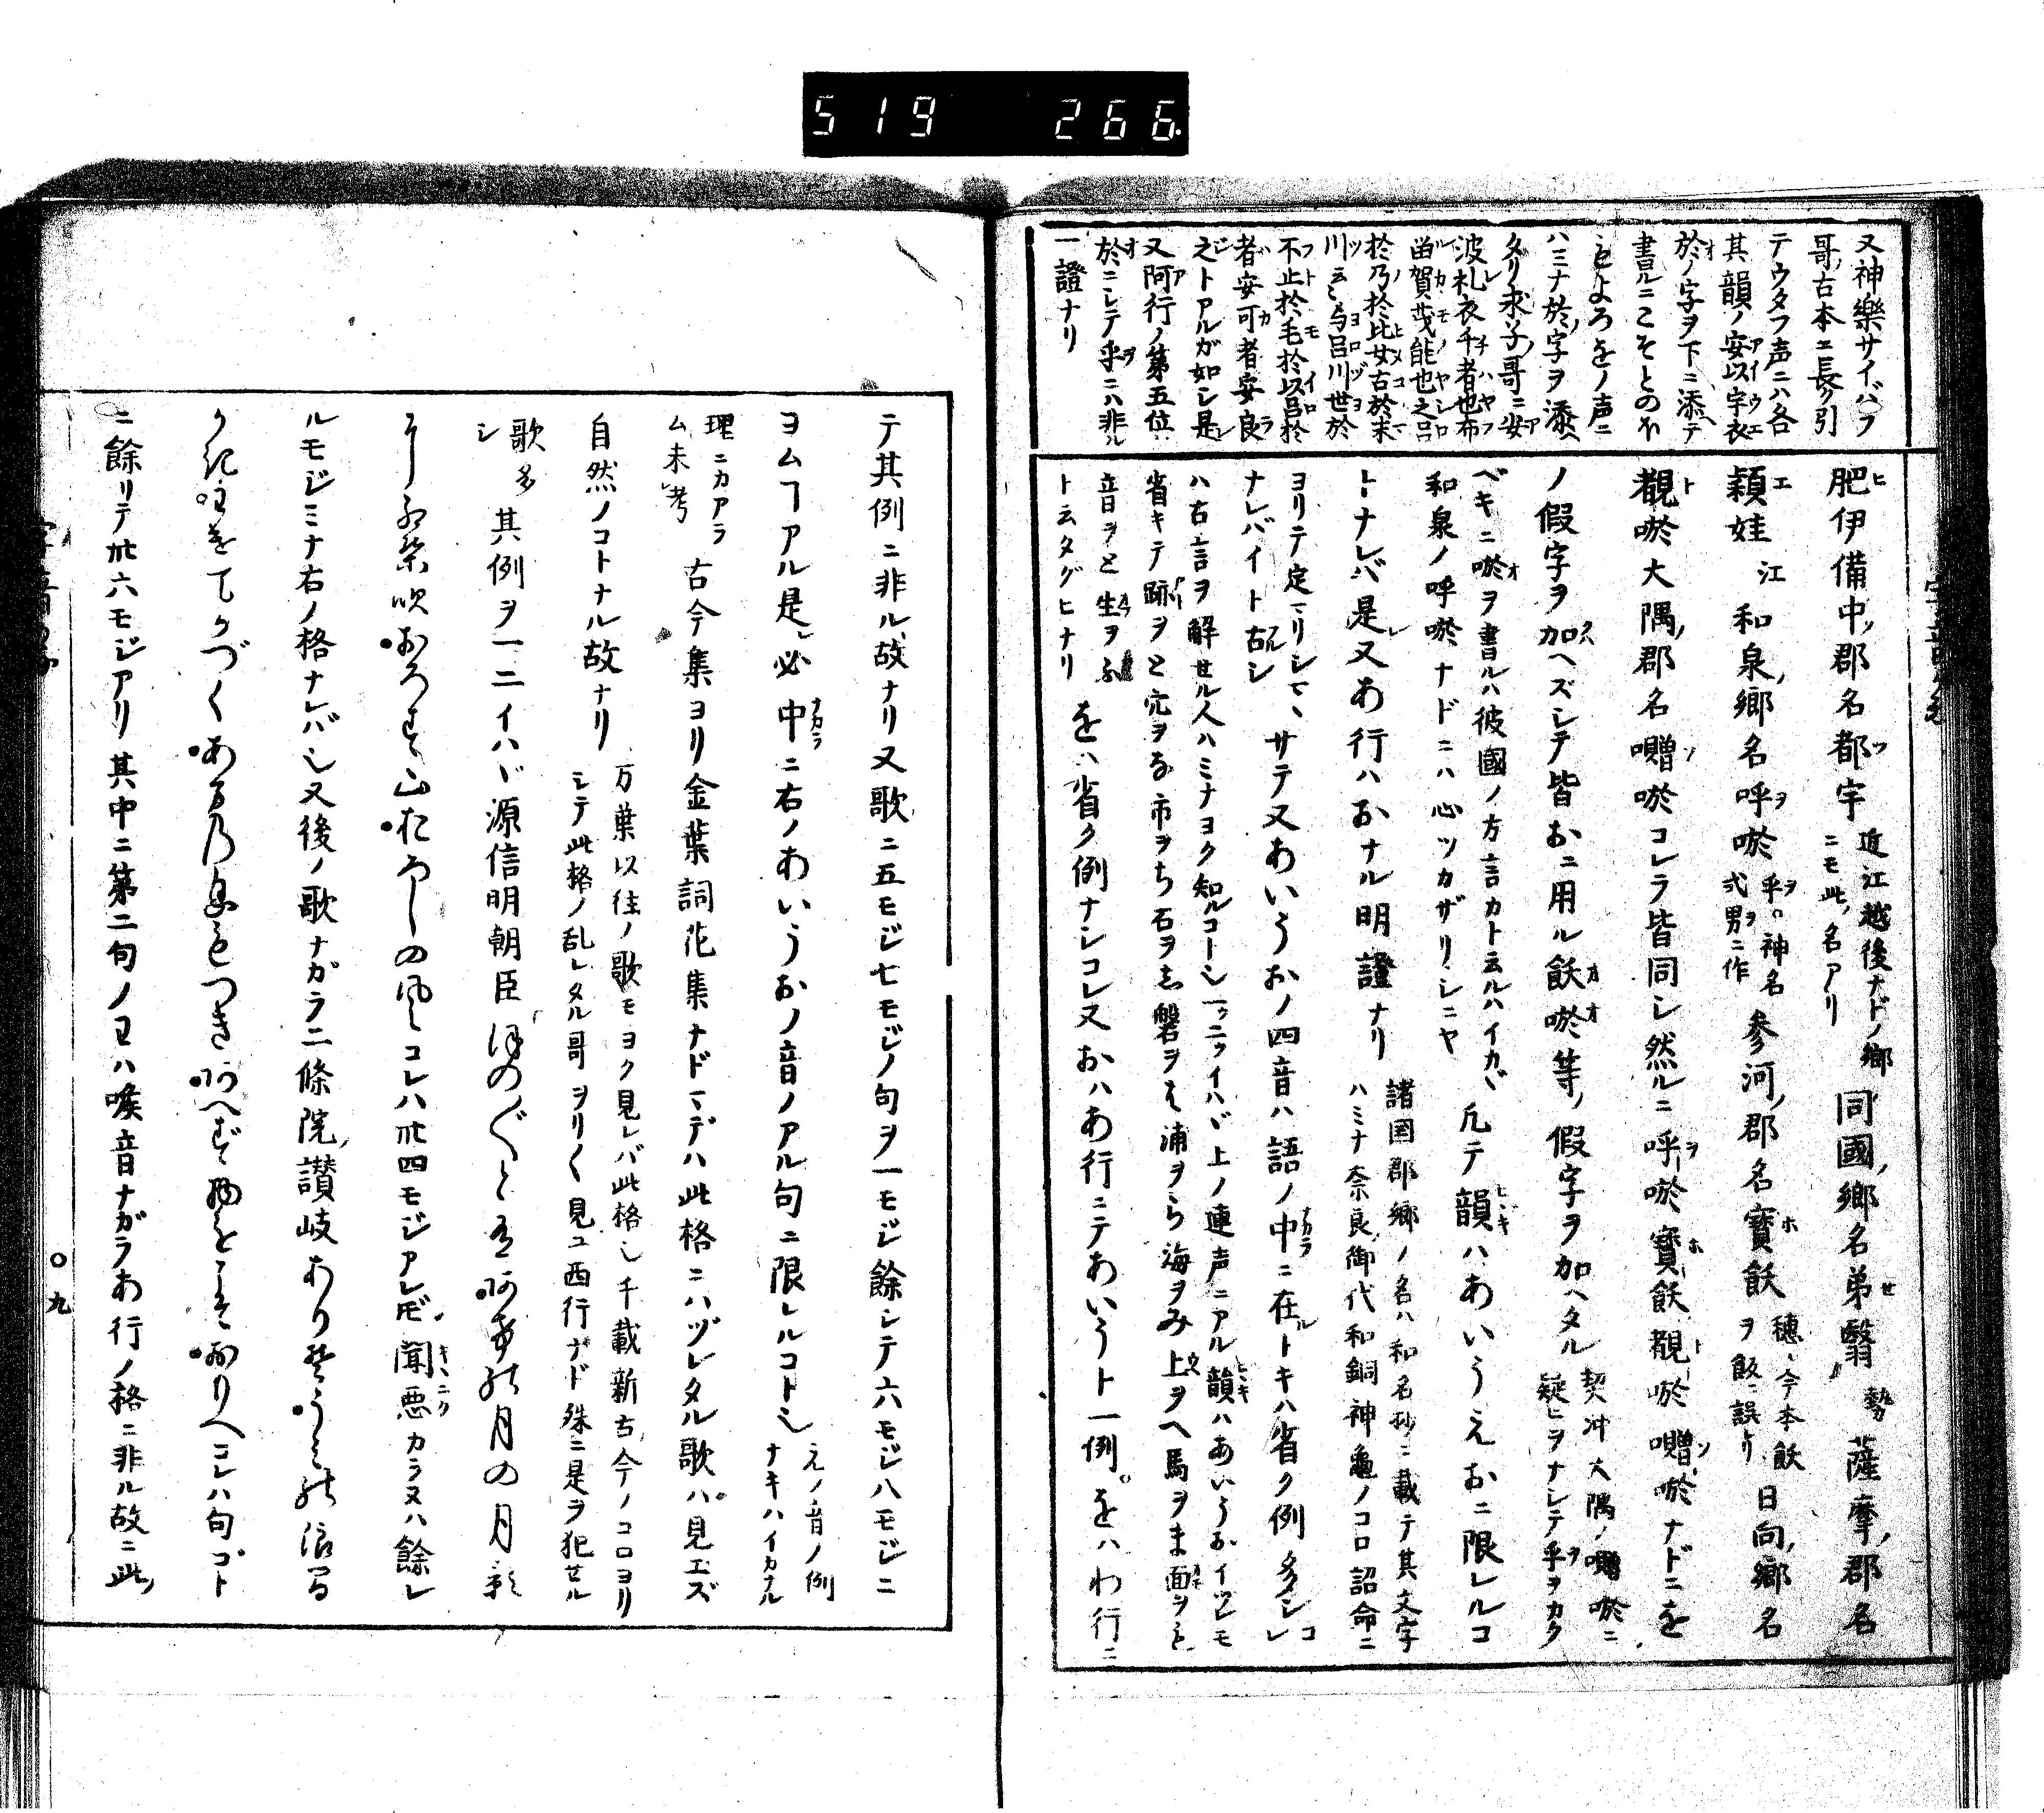 519 266.
又神樂サイバラ
哥ノ古本ニ長ク引
テウタフ声ニハ各
其韻ノ安以宇衣
於ノ字ヲ下ニ添ヘテ
書ルニこそとのほ
もよろをノ声ニ
ハミナ於ノ字ヲ添ヘ
タリ求子哥ニ安
波礼衣千者也布
留賀茂能也之呂
於乃於比女古於末
川云々与呂川世於
不止於毛於以呂於
者安可者安良
之トアルガ如シ是レ
又阿行ノ第五位
於ニシテ乎ニハ非ル
一證ナリ
肥伊備中ノ郡名都宇
近江越後ナドノ郷
ニモ此ノ名アリ
同國ノ郷名弟翳
勢
薩摩ノ郡名
穎娃
江
和泉ノ郷名呼唹
乎ノ神名
式男ニ作
参河ノ郡名寶飫
穗今本飫
ヲ飯ニ誤レリ
日向ノ郷名
覩唹大隅ノ郡名囎唹コレラ皆同シ然ルニ呼唹寶飫覩唹囎唹ナドニを
ノ假字ヲ加ヘズシテ皆おニ用ル飫唹等ノ假字ヲ加ヘタル
契沖大隅ノ囎唹ニ
疑ヒヲナシテ乎ヲカク
ベキニ唹ヲ書ルハ彼國ノ方言カト云ルハイカヾ
和泉ノ呼唹ナドニハ心ツカザリシニヤ
凡テ韻ハあいうえおニ限レルコ
トナレバ是レ又あ行ハおナル明證ナリ
諸国郡郷ノ名ハ和名抄ニ載テ其文字
ハミナ奈良ノ御代和銅神亀ノコロ詔命ニ
ヨリテ定マリシ
ナレバイト古シ
サテ又あいうおノ四音ハ語ノ中ニ在ルトキハ省ク例多シ
コレ
ハ古言ヲ解セル人ハミナヨク知ルコト也一ツニツイハヾ上ノ連声ニアル韻ハあいうおイヅレモ
省キテ跡ヲと穴ヲな市ヲち石ヲし磐ヲは浦ヲら海ヲみ上ヲヘ馬ヲま面ヲも
音ヲと生ヲふ
ト云タグヒナリ
をハ省ク例ナシコレ又おハあ行ニテあいうト一例をハわ行ニ
テ其例ニ非ル故ナリ又歌ニ五モジ七モジノ句ヲ一モジ餘シテ六モジ八モジニ
ヨムヿアル是レ必中ニ右ノあいうおノ音ノアル句ニ限レルコト也
えノ音ノ例
ナキハイカナル
理ニカアラ
ム未考
古今集ヨリ金葉詞花集ナドマデハ此格ニハヅレタル歌ハ見エズ
自然ノコトナル故ナリ
万葉以往ノ歌モヨク見レバ此格也千載新古今ノコロヨリ
シテ此格ノ乱レタル哥ヲリ〳〵見ユ西行ナド殊ニ是ヲ犯セル
歌多
シ
其例ヲ一二イハヾ源信明朝臣ほの〴〵と有明の月の月影に
もみぢ吹おろす山おろしの風コレハ卅四モジアレ𪜈聞悪カラヌハ餘レ
ルモジミナ右ノ格ナレバ也又後ノ歌ナガラ二條院ノ讃岐ありそうみの浪ま
かきわけてかづくあまの息もつきあへず物をこそおもへコレハ句ゴト
ニ餘リテ卅六モジアリ其中ニ第二句ノわハ喉音ナガラあ行ノ格ニ非ル故ニ此ノ
九